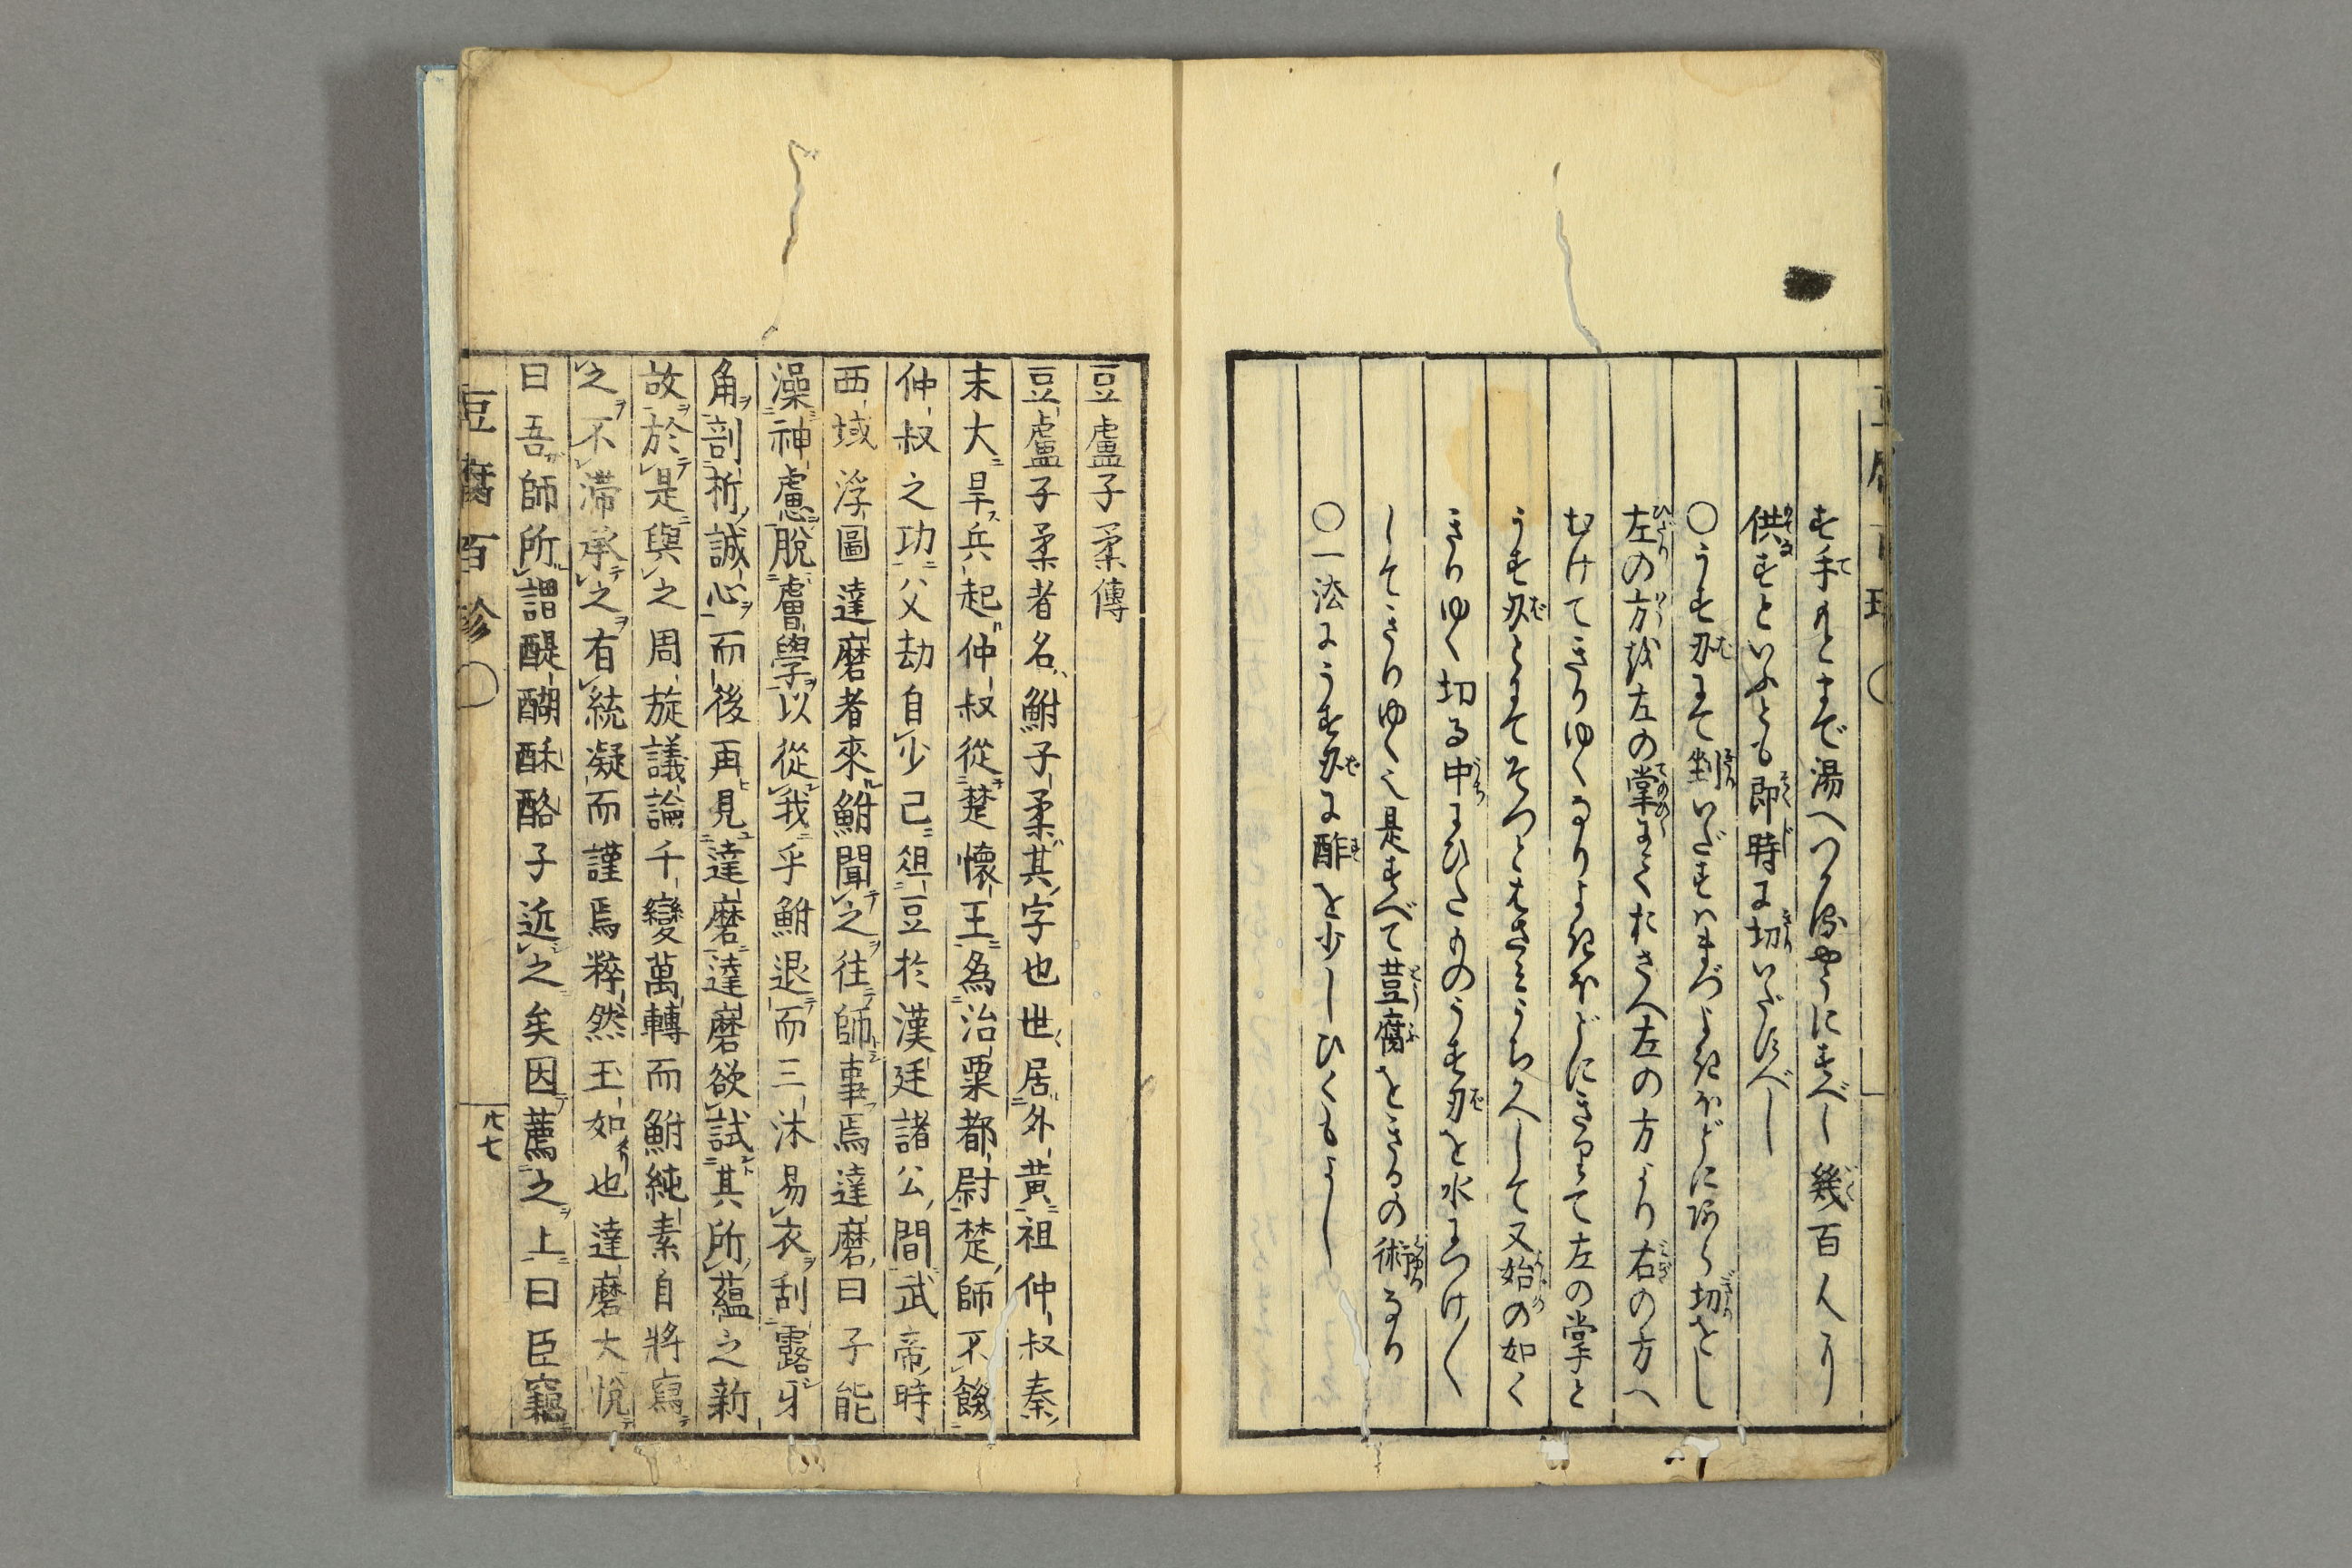 す手もとまで湯へつけるやうにすべし幾百人まり
供すといふとも即時に切いだすべし
○うす刄にて剉いだすはまづよきほどにあらく切をとし
左の方を左の掌にてくわさへ左の方より右の方へ
むけてきりゆくなりよきほどにきりて左の掌と
うす刄とにてそつとはさみうちかへして又始の如く
きりゆく切る中にひたものうす刄を水につけ〱
してきりゆく也是すべて豆腐をきるの術なり
○一法にうす刄に酢を少しひくもよし
豆盧子柔傳
豆盧子柔者名鮒子柔其字也世居外黄祖仲叔秦
末大旱兵起仲叔從楚懷王為治粟都尉楚師不餒
仲叔之功父劫自少已俎豆於漢廷諸公間武帝時
西域浮圖達磨者來鮒聞之往師事焉達磨曰子能
澡神慮脱膚學以從我乎鮒退而三沐易衣刮露牙
角剖析誠心而後再見達磨達磨欲試其所蘊之新
故於是與之周旋議論千變萬轉而鮒純素自將寫
之不滞承之有統凝而謹焉粹然玉如也達磨大悦
曰吾師所謂醍醐酥酪子近之矣因薦之上曰臣竊
豆腐百珍
廿七